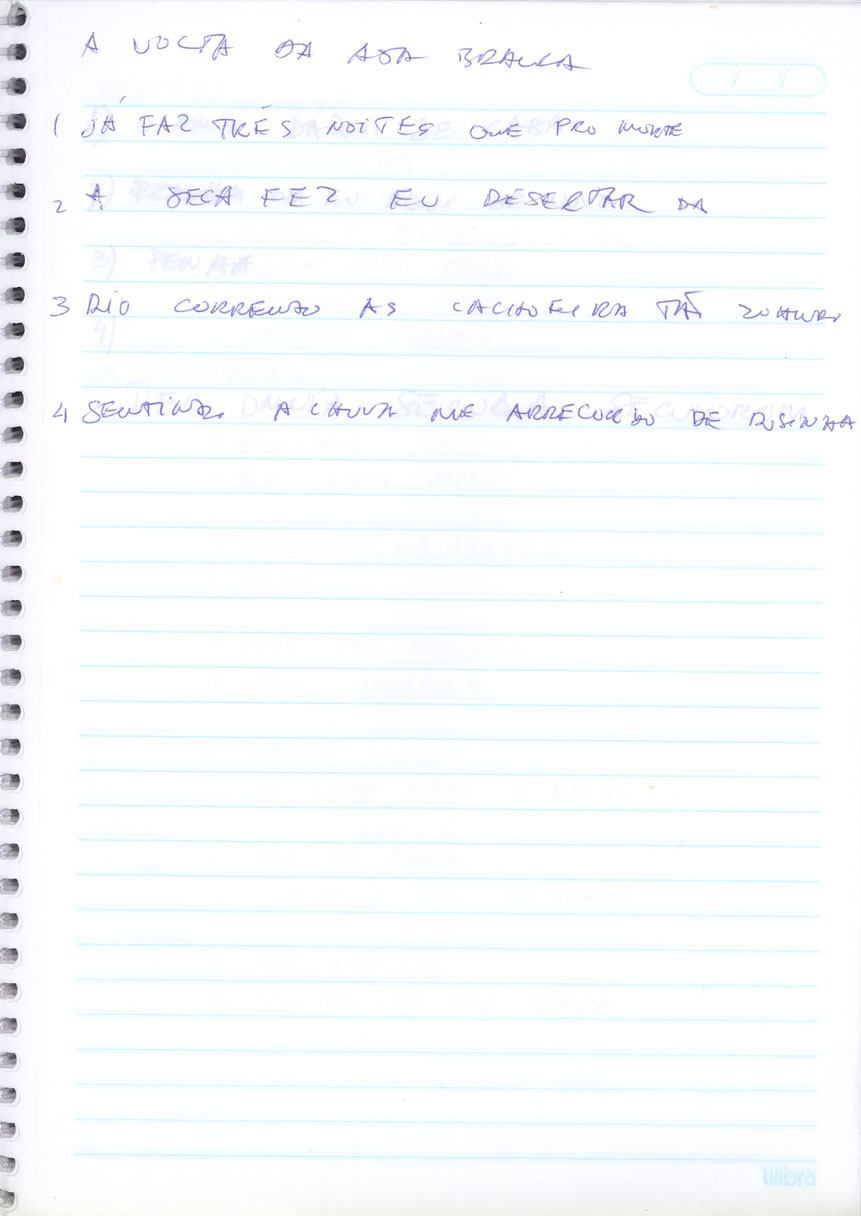 A VOLTA DA ASA BRANCA
1 JÁ FAZ TRÊS NOITES QUE PRO NORTE
2 A SECA FEZ EU DESERTAR DA
3 RIO CORRENDO AS CACHOEIRA TÁ ZOANDO
4 SENTINDO A CHUVA ME ARRECORDO DE ROSINHA
tilibra